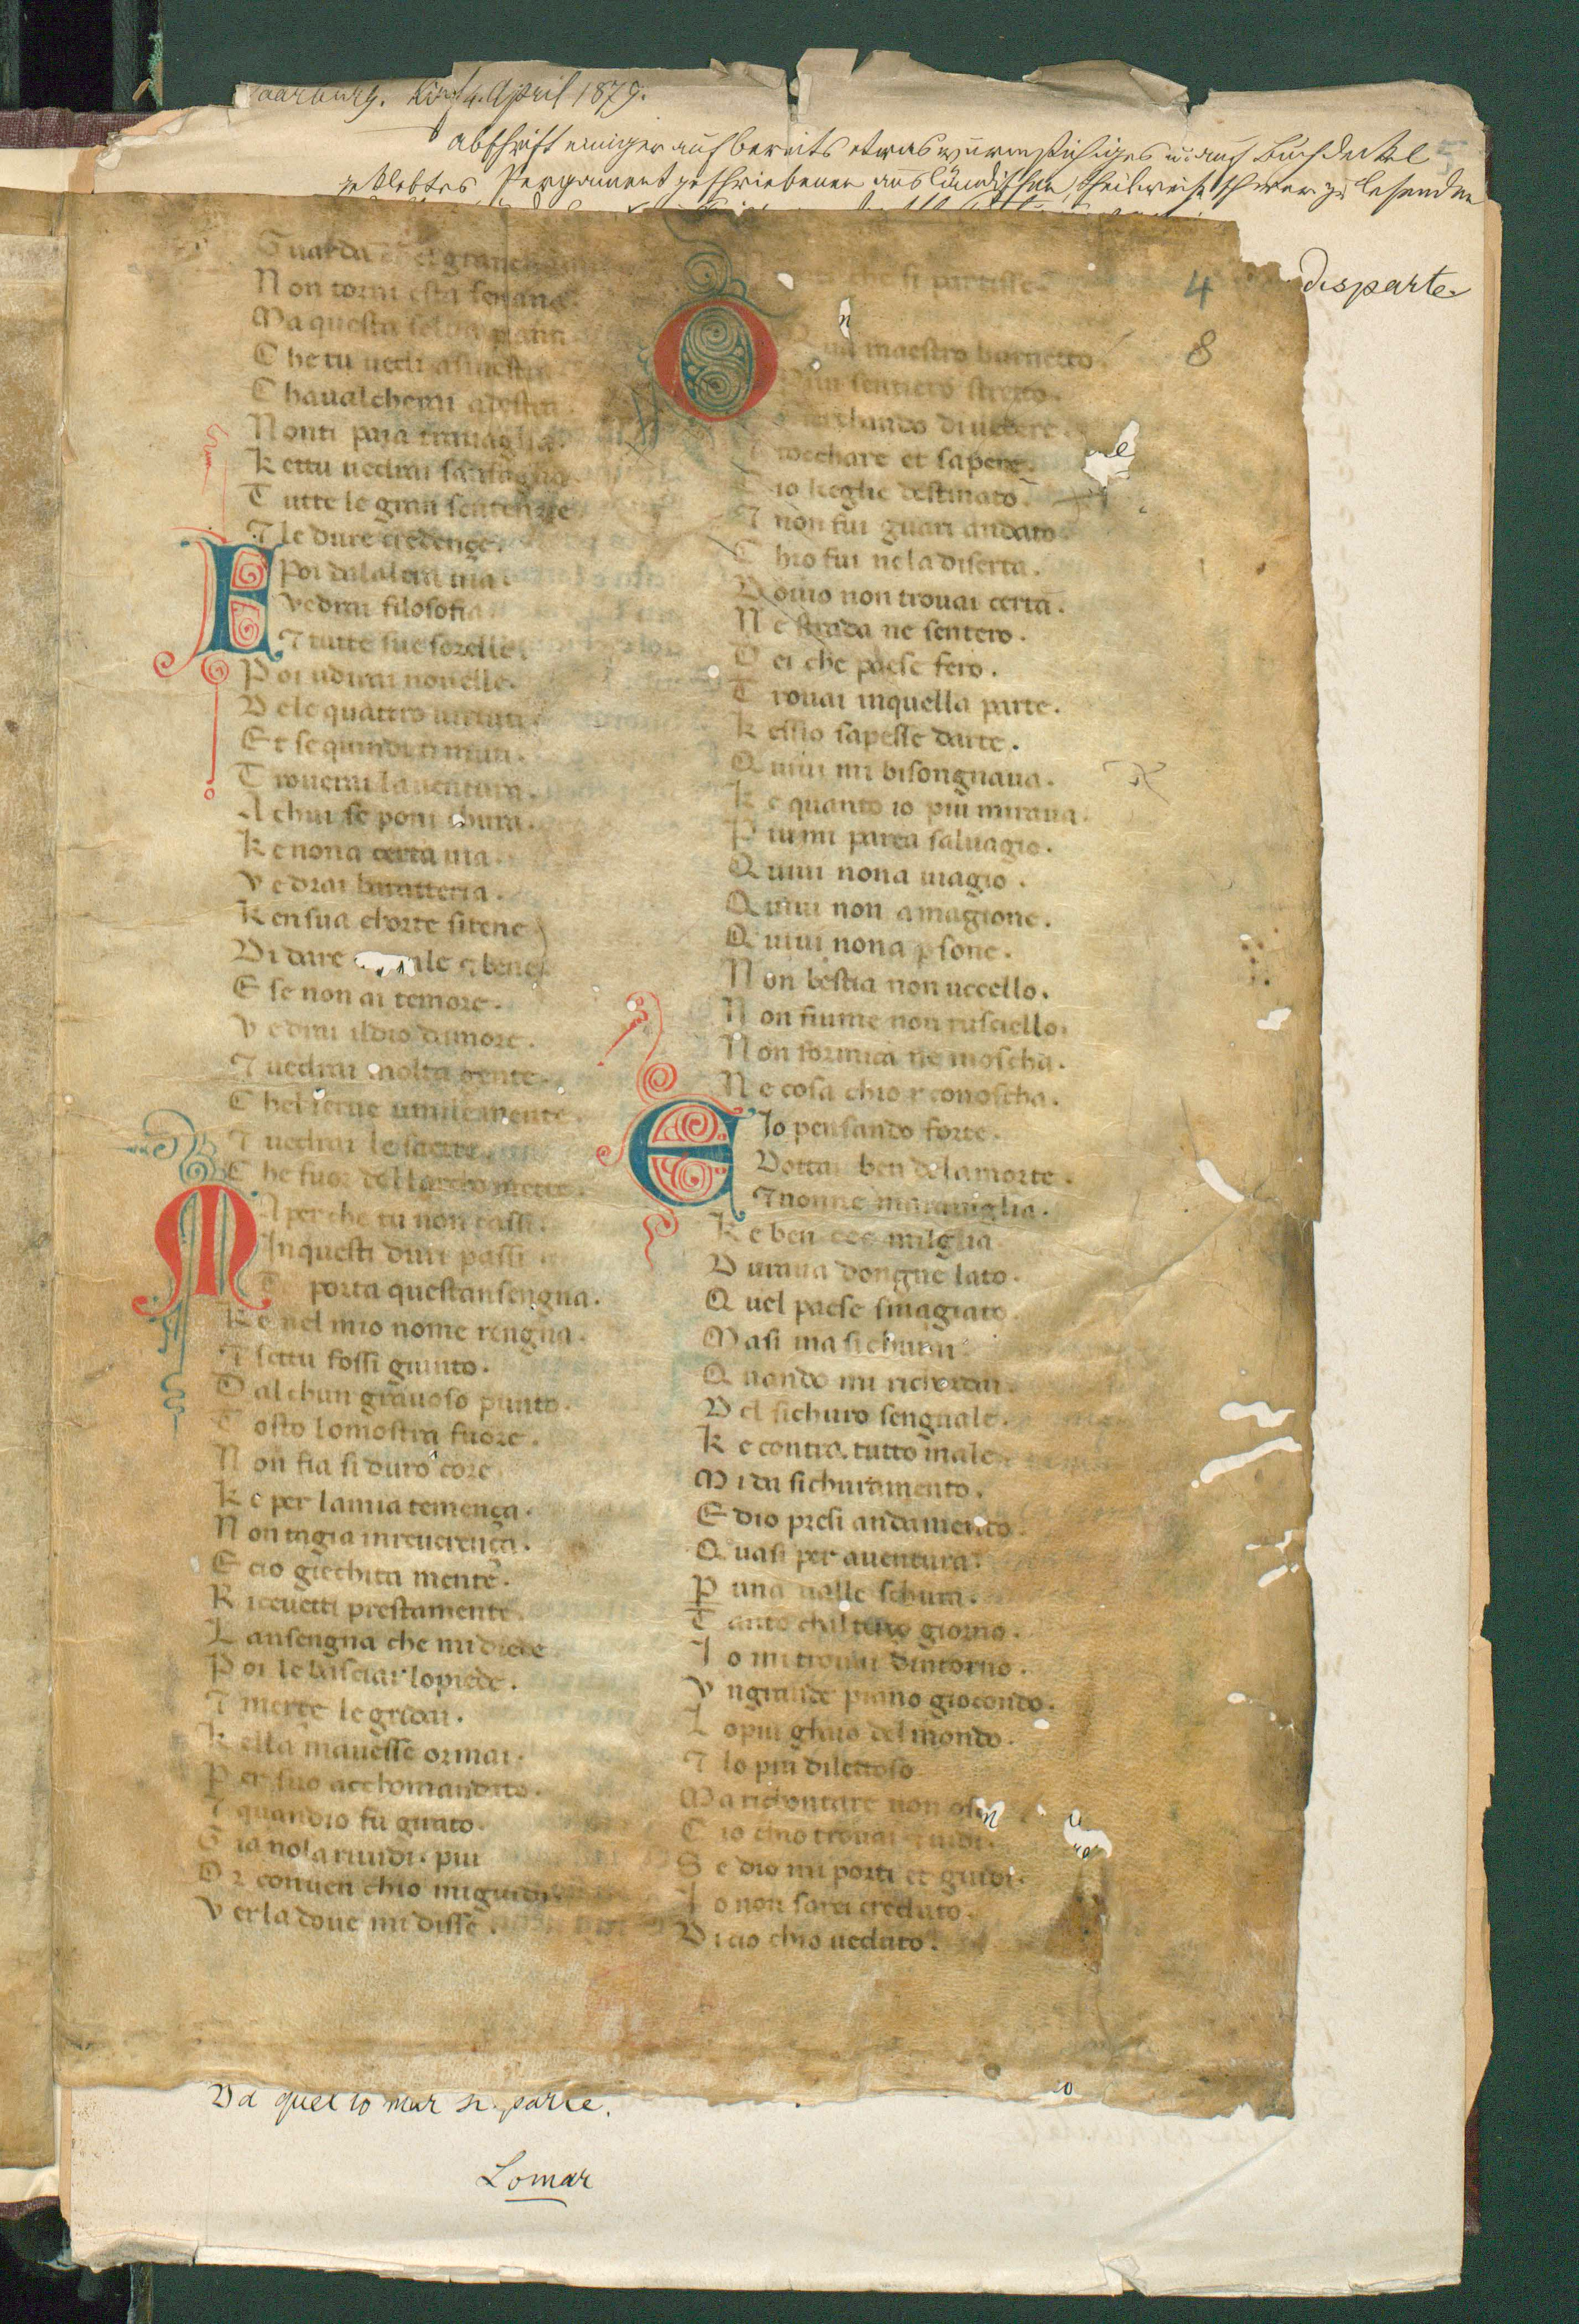 Saarburg. den 4. April 1879.
Abschrift einiger auf bereits etwas wurmstichiges u. auf Buchdeckel
geklebtes Pergament geschriebenen ausländischen, theilweise schwer zu lesenden
disparte.
4
8
Guarda
Non torni esta semana.
Ma questa selua piana.
Che tu uedi asinestra
Chaualcherai adestra.
Nonti paia trauaglia.
Kettu uedrai sansaglia.
Tutte le gran sentenze
⁊ le dure credenze.
E Poi dalaltra uia.
vedrai filosofia.
⁊ tutte sue sorelle.
Poi udirai nouelle.
Dele quattro uirtuti.
Et se quindi ti muti.
Trouerai lauentura.
Achui se poni chura.
Ke nona certa uia.
Vedrai baratteria.
Kensua chorte sitene
Di dare male ⁊ bene.
E se non ai temore.
Vedrai ildio damore.
⁊ uedrai molta gente.
Chel serue umilemente.
⁊ uedrai le saette.
Che fuor dellarcho mette.
MA perche tu non cassi.
Inquesti duri passi
Te porta questansengna.
Ke nel mio nome rengna.
⁊ settu fossi giunto.
Dalchun grauoso punto.
Tosto lomostra fuore.
Non fia si duro core
Ke per lamia temença.
Non tagia inreuerença.
E cio giechita mente.
Riceuetti prestamente.
Lansengna che mi diede
Poi le basciai lopiede.
⁊ merçe le gridai.
Kella mauesse ormai.
Per suo acchomandato.
⁊ quandio fu girato.
Gia nola riuidi. piu
Or conuen chio miguidi.
Ver la doue mi disse.
che si partisse.
O
n
ua maestro burnetto.
Pun sentiero stretto.
Cierchando di uedere.
e
⁊ tocchare et sapere.
Cio keglie destinato.
⁊ non fui guari andato.
Chio fui nela diserta.
Douio non trouai certa.
Ne strada ne sentero.
Dei che paese fero.
Trouai inquella parte.
Kessio sapesse darte.
Quiui mi bisongnaua.
Ke quanto io piu miraua.
Piu mi parea saluagio.
Quiui nona uiagio.
Quiui non a magione.
Quiui nona psone.
Non bestia non uccello.
Non fiume non rusciello.
Non formica ne moscha.
Ne cosa chio rconoscha.
E Io pensando forte.
Dottai ben delamorte.
⁊ nonne marauiglia.
Ke ben ccc milglia
Duraua dongne lato.
Quel paese smagiato.
Masi masichurai
Quando mi richordai.
Del sichuro sengnale.
Ke contra. tutto male.
Mi da sichuramento.
E dio presi andamento.
Quasi per auentura.
P una ualle schura.
Tanto chal terço giorno.
Io mi trouai dintorno.
Vngrande piano giocondo.
Lopiu ghaio del mondo.
⁊ lo piu dilettoso
Ma richontare non oso
Cio chio trouai ⁊ uidi.
Se dio mi porti et guidi.
Io non sarei creduto.
Di cio chio ueduto.
Da quel lo mar si parte.
Lomar